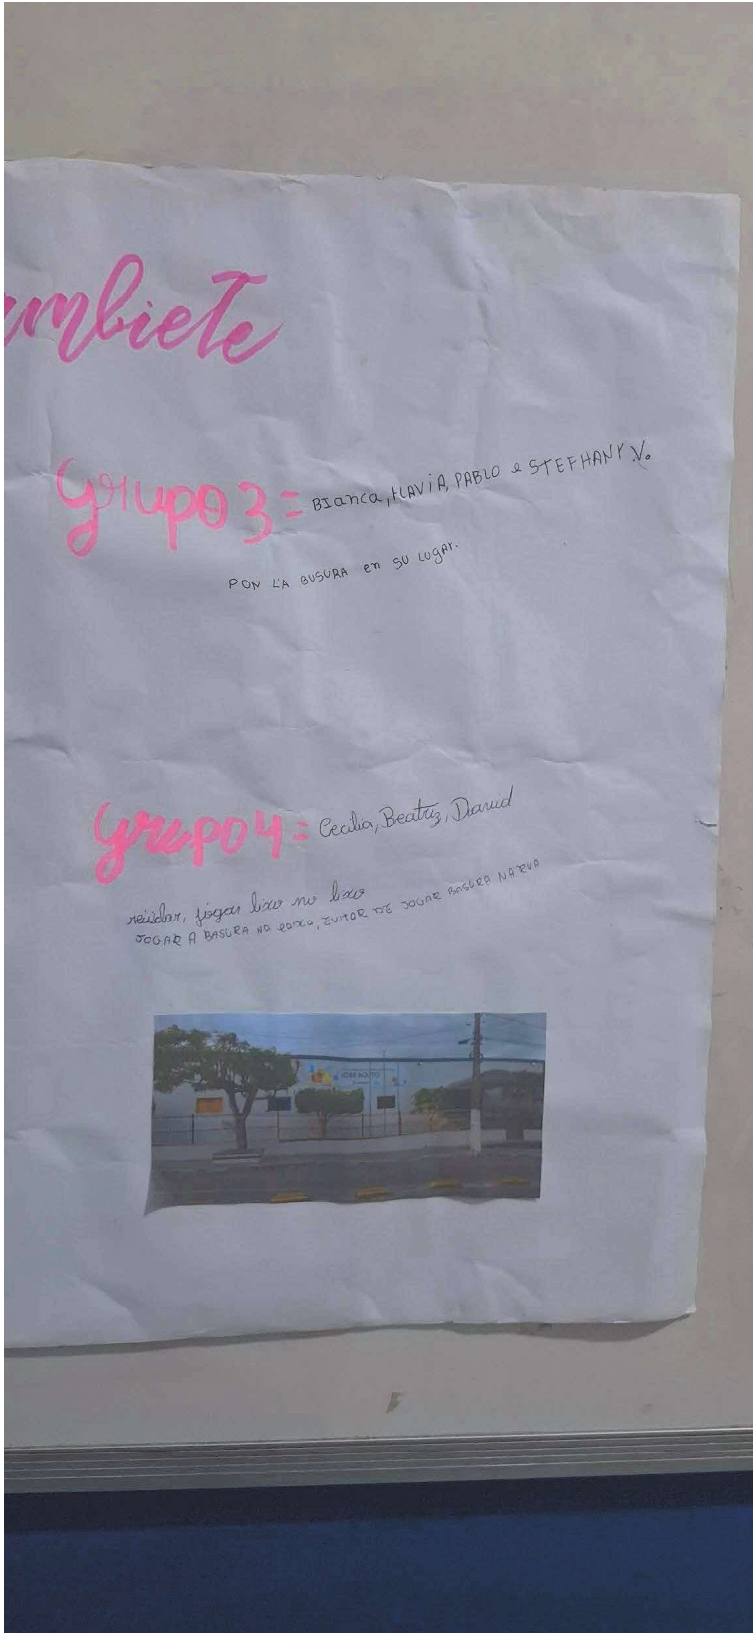 ambiete
Grupo 3 = BIanca, FLAViA, PABLO e STEFHANY V.
PON LA BUSURA en SU LUGAr.
Grupo 4 = Cecilia, Beatriz, David
reciclar, jogar lixo no lixo
JOGAR A BASURA NA, EVITAR DE JOGAR BASURA NA RUA